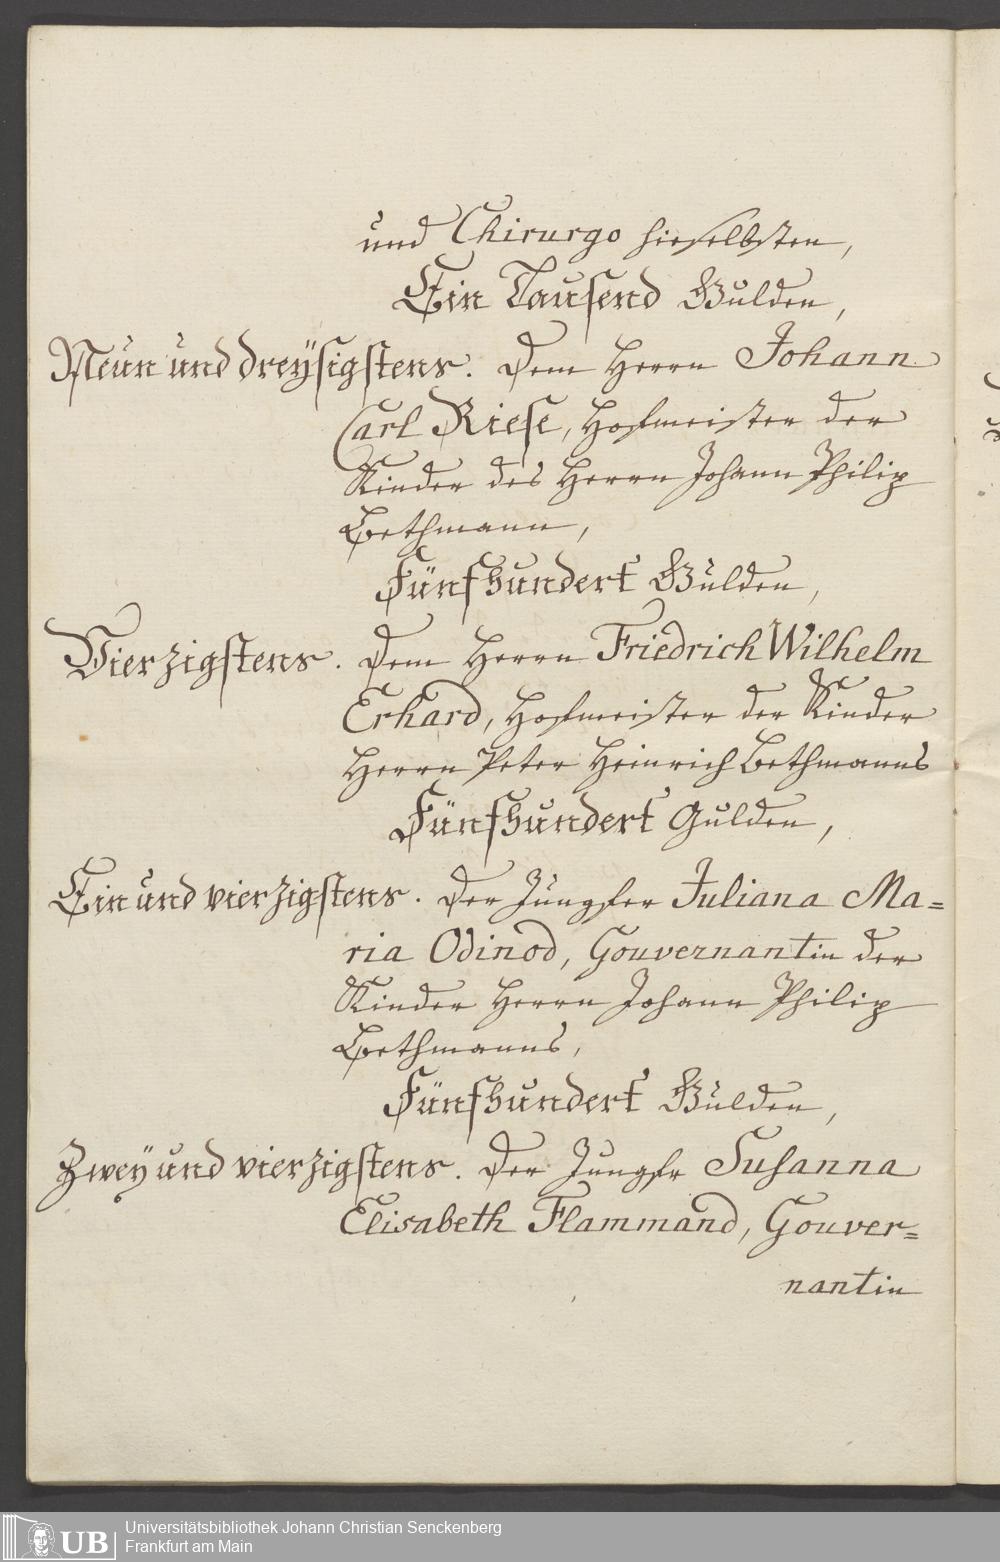 und Chirurgo hieselbsten,
Ein Tausend Gulden,
Neun und dreÿsigstens. Dem Herrn Johann
Carl Riese, Hofmeister der
Kinder des Herrn Johann Philip
Bethmann,
Fünfhundert Gulden,
Vierzigstens. Dem Herrn Friedrich Wilhelm
Erhard, Hofmeister der Kinder
Herrn Peter Heinrich Bethmanns
Fünfhundert Gulden,
Ein und vierzigstens. Der Jungfer Juliana Ma=
ria Odinod, Gouvernantin der
Kinder Herrn Johann Philip
Bethmanns,
Fünfhundert Gulden,
Zweÿ und vierzigstens. Der Jungfr Susanna
Elisabeth Flammand, Gouver=
nantin
UB
Universitätsbibliothek Johann Christian Senckenberg
Frankfurt am Main